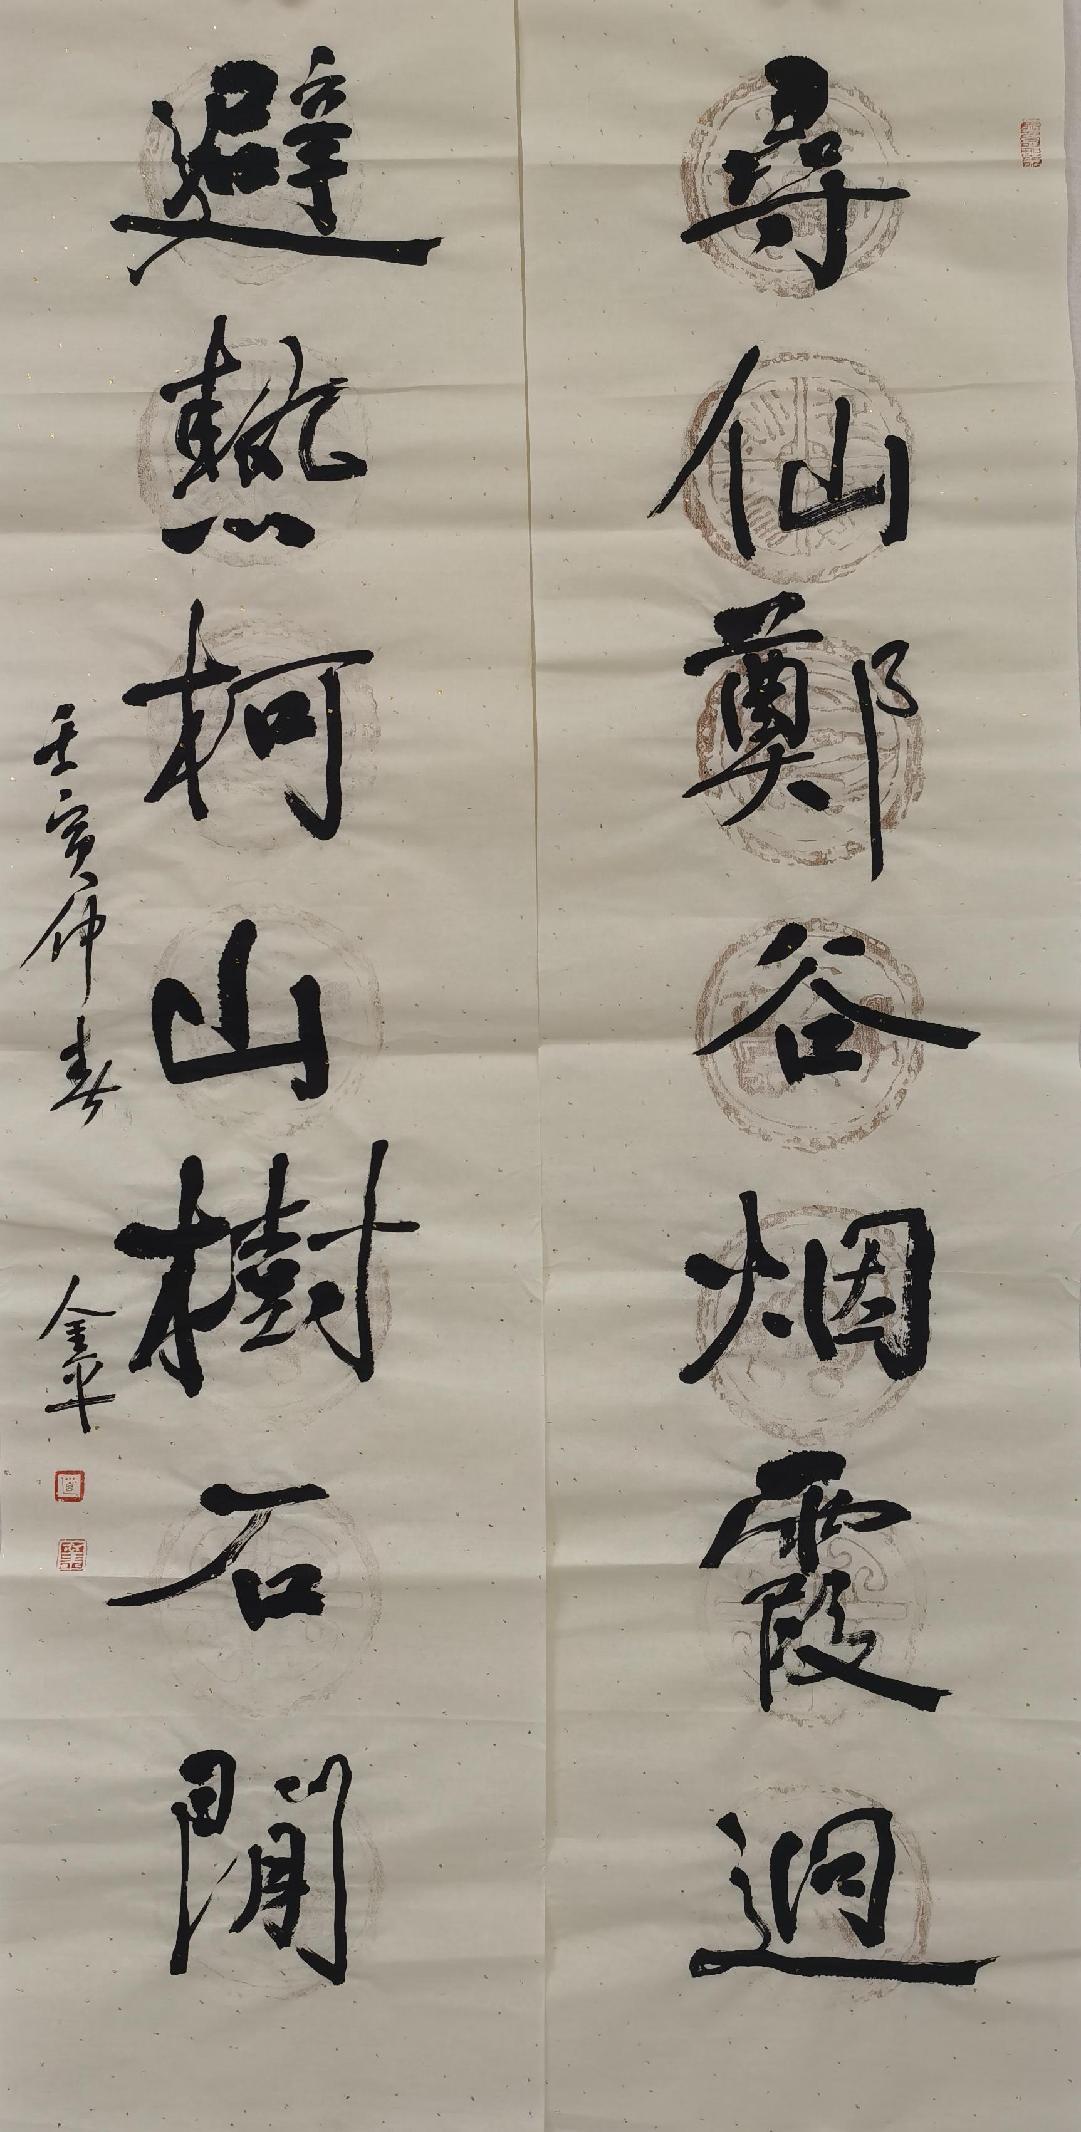 尋仙鄭谷烟霞迥
避熱柯山樹石閒
壬寅仲春
金平